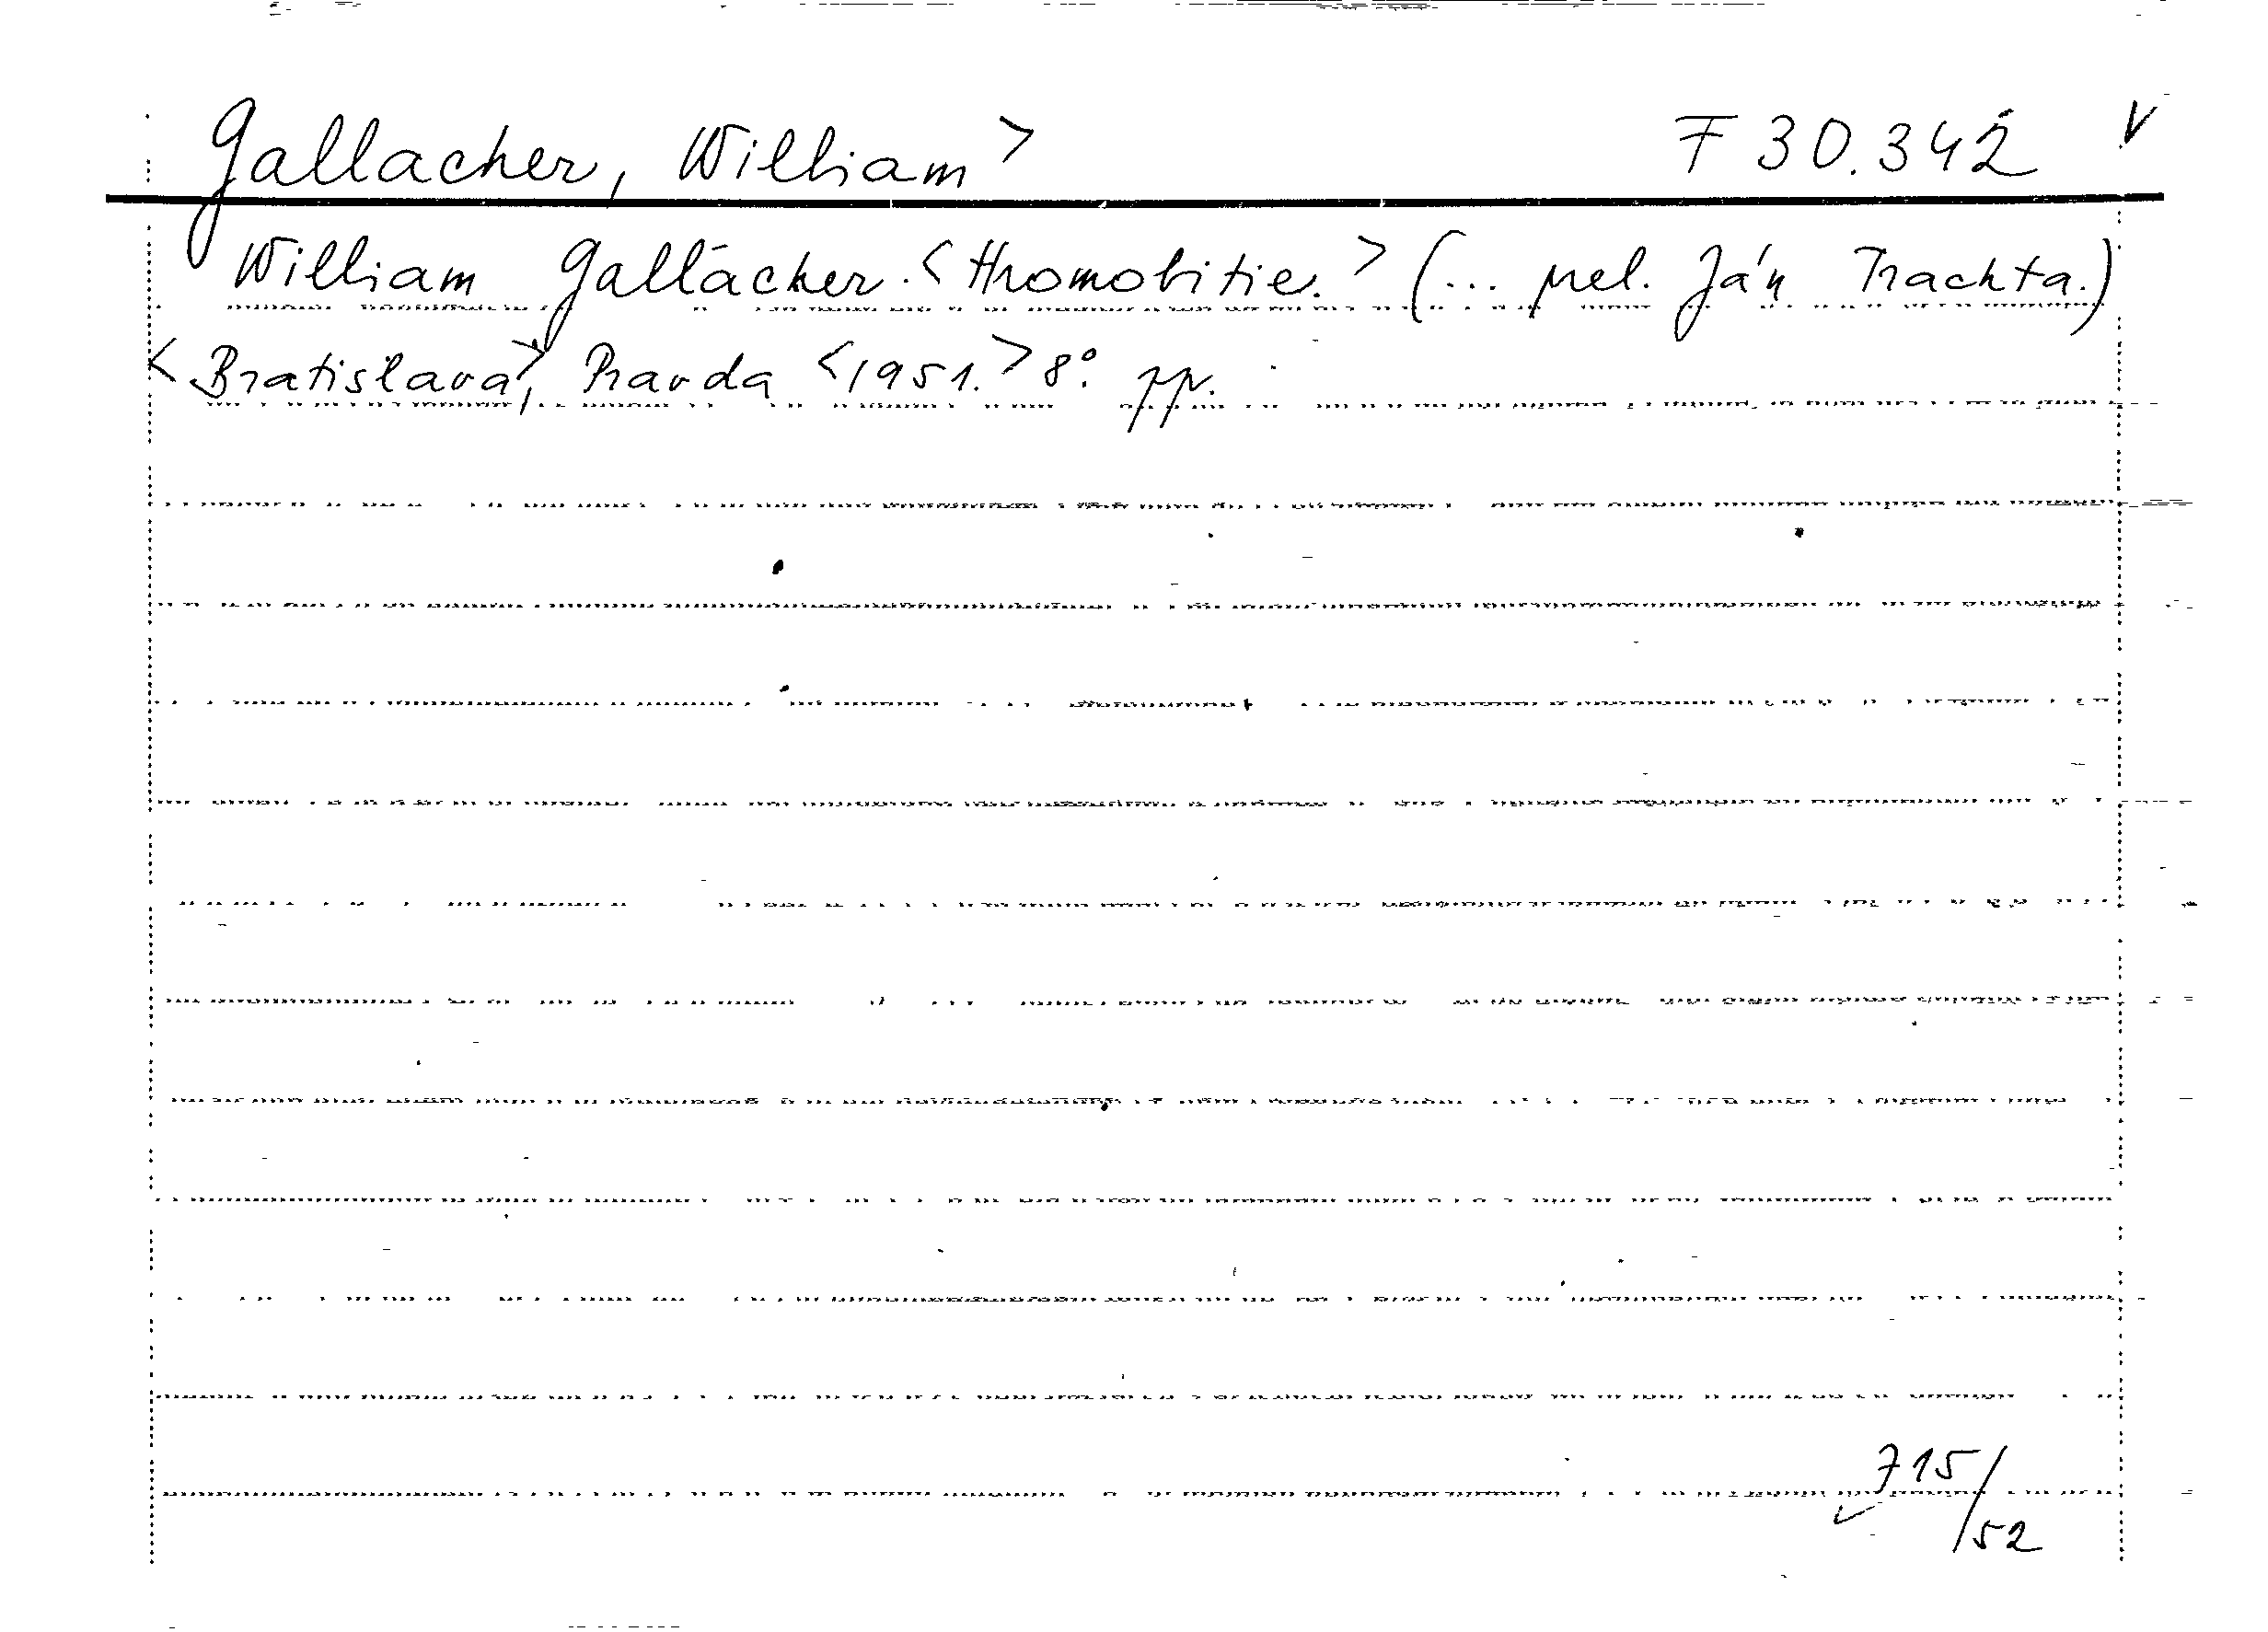 Gallacher, William> F 30.342 V
William Gallacher. <Hromobitie.> (... prel. Ján Trachta.)
<Bratislava>, Pravda <1951.> 8°. pp.
715/52